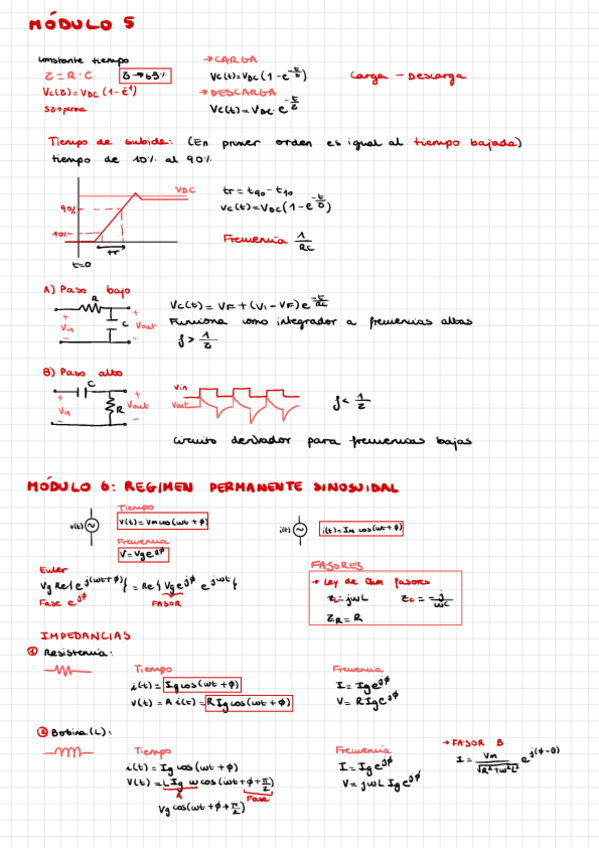 MÓDULO 5
constante tiempo
→CARGA
Z = R·C
Z→63%
Vc(t)=VDC(1-e^-t/Z)
Carga - Descarga
Vc(Z)=VDC(1-e^-1)
→DESCARGA
Vc(t)=VDC·e^-t/Z
Tiempo de subida: (En primer orden es igual al tiempo bajada)
tiempo de 10% al 90%
VDC
90%
10%
tr
t=0
tr = t90 - t10
Vc(t)=VDC(1-e^-t/Z)
Frecuencia 1/RC
A) Paso bajo
R
C
+ Vin -
+ Vout -
Vc(t) = VF + (Vi - VF) e^-t/RC
Funciona como integrador a frecuencias altas
f > 1/Z
B) Paso alto
C
R
+ Vin -
+ Vout -
Vin
Vout
f < 1/Z
Circuito derivador para frecuencias bajas
MÓDULO 6: REGIMEN PERMANENTE SINOSUIDAL
Tiempo
v(t)
V(t)=Vm cos(ωt+ϕ)
i(t)
i(t)=Im cos(ωt+ϕ)
Frecuencia
V=Vg e^jϕ
Euler
Vg Re{e^j(ωt+ϕ)} = Re{Vg e^jϕ e^jωt}
Fase e^jϕ
FASOR
FASORES
→ Ley de Ohm fasores
ZL=jωL
Zc = -j/ωC
ZR=R
IMPEDANCIAS
① Resistencia:
Tiempo
i(t) = Ig cos(ωt+ϕ)
V(t) = R i(t) = R Ig cos(ωt+ϕ)
Frecuencia
I = Ig e^jϕ
V = R Ig e^jϕ
② Bobina (L):
Tiempo
i(t) = Ig cos(ωt+ϕ)
V(t) = L Ig ω cos(ωt+ϕ+π/2)
A
Fase
Vg cos(ωt+ϕ+π/2)
Frecuencia
I = Ig e^jϕ
V = jωL Ig e^jϕ
→FASOR B
I = Vm/√R²+ω²L² e^j(ϕ-θ)